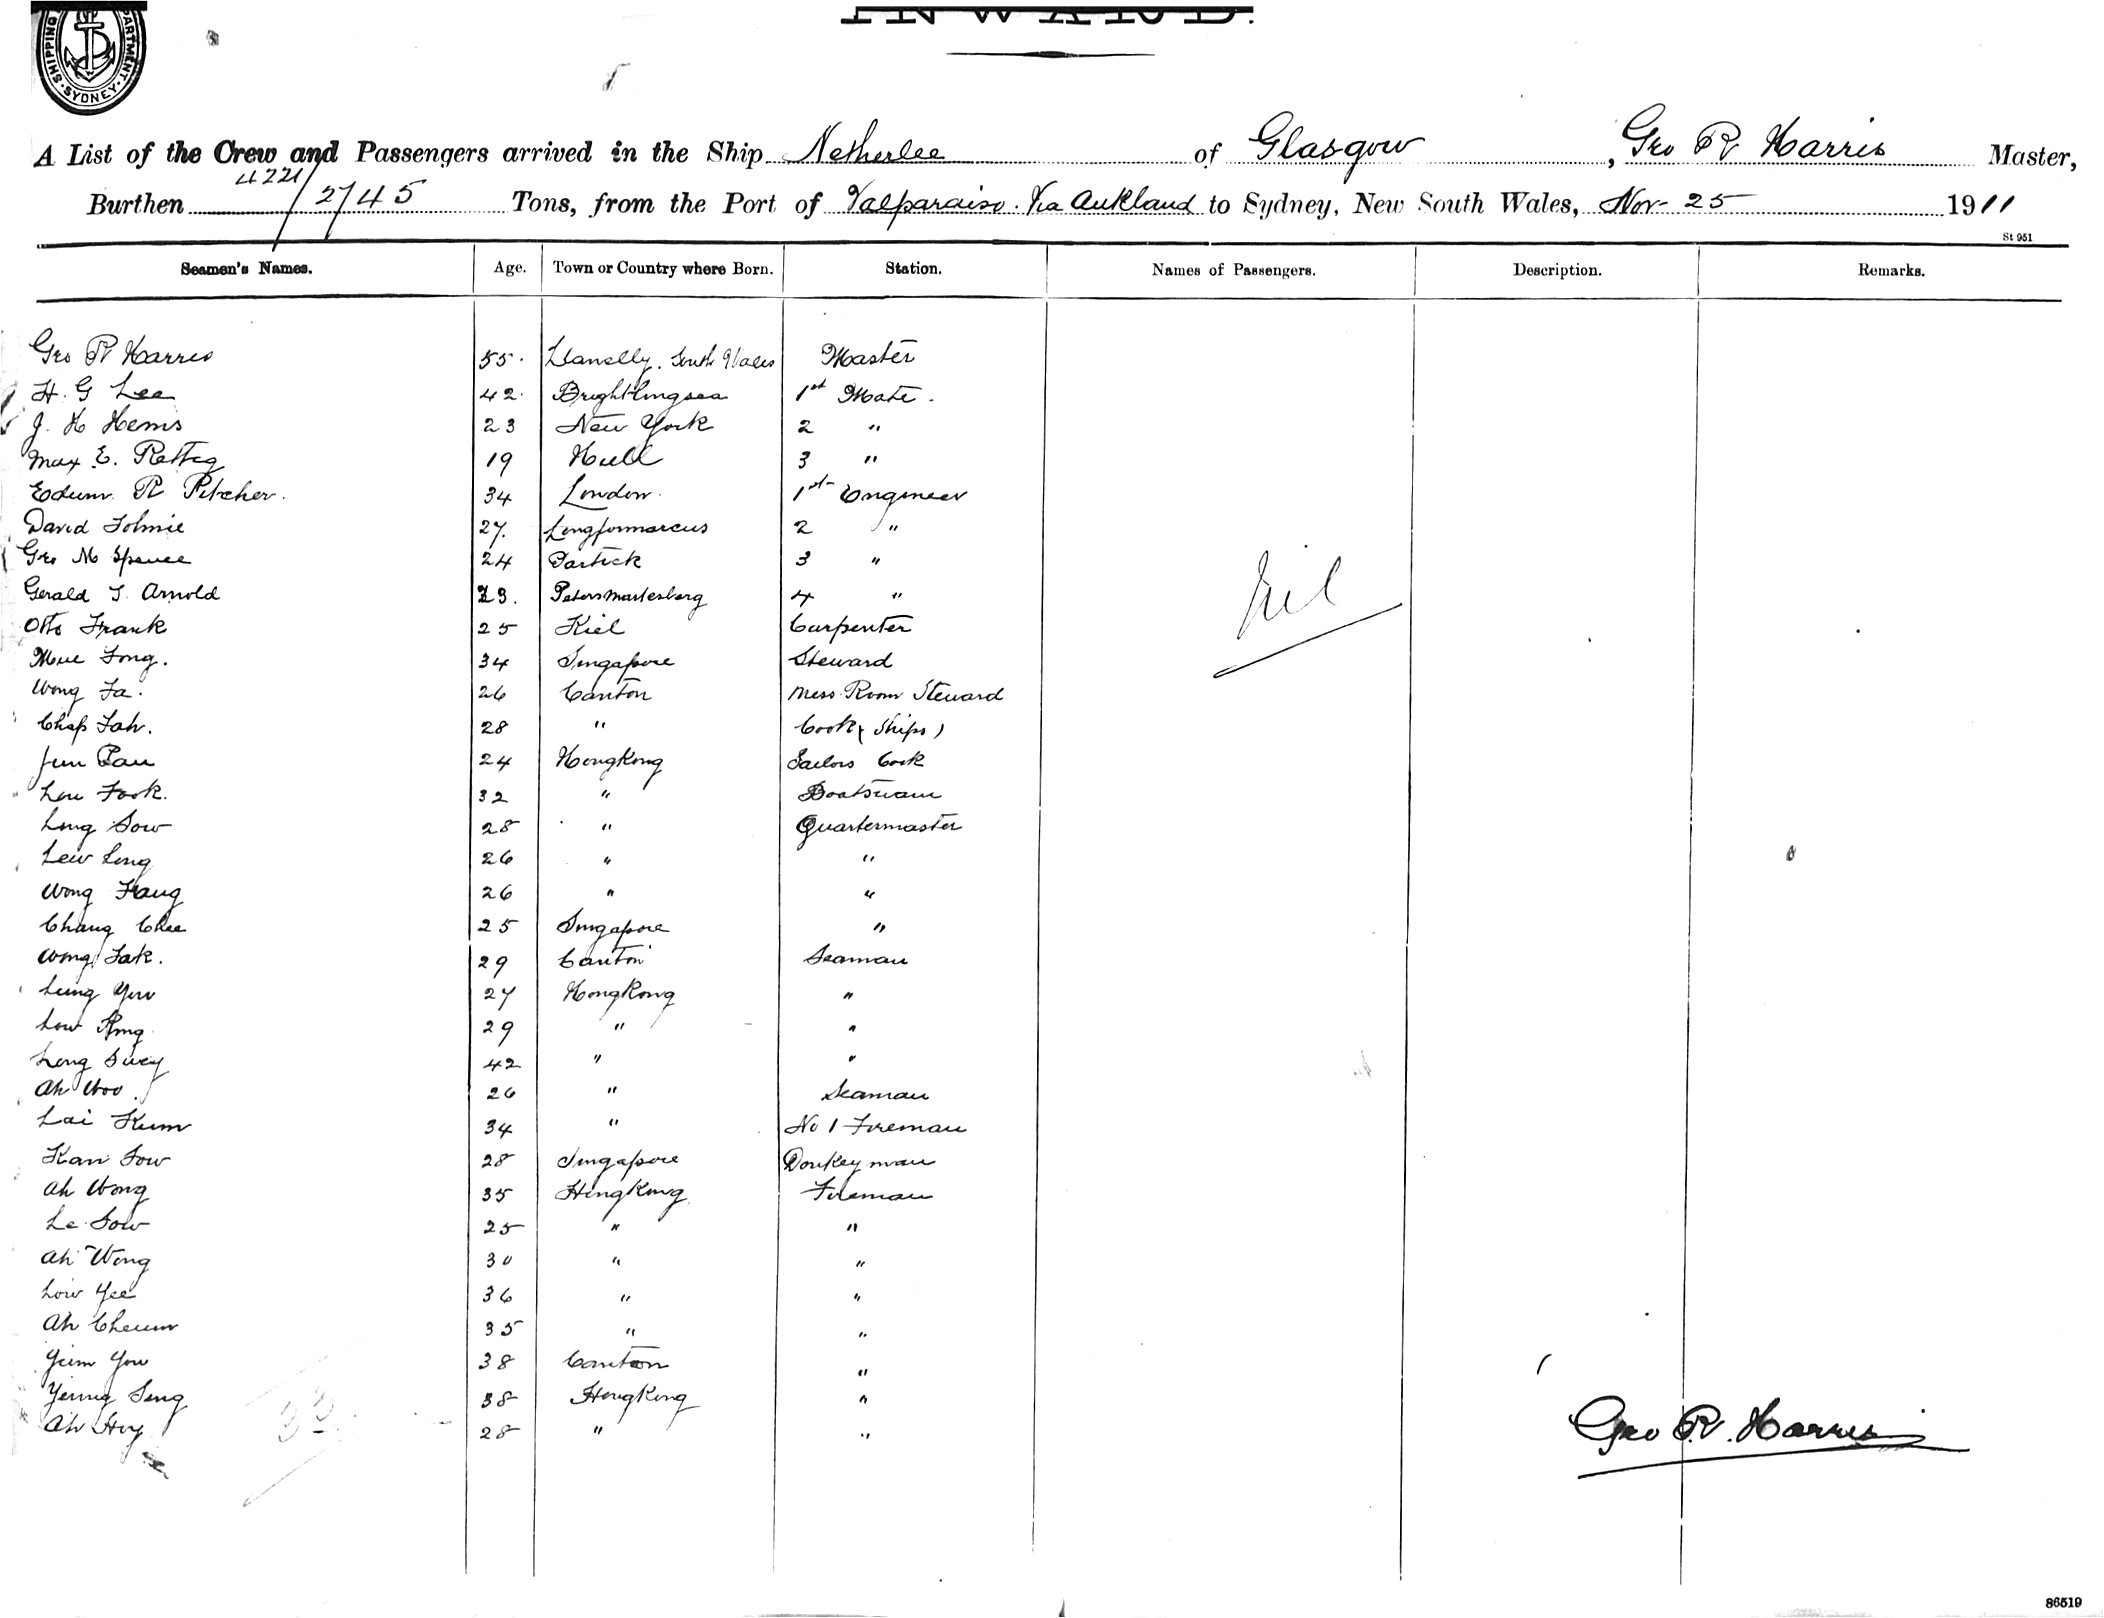 INWARD.
SHIPPING DEPARTMENT SYDNEY
A List of the Crew and Passengers arrived in the Ship Netherlee of Glasgow, Geo R Harris Master,
Burthen 4221/2745 Tons, from the Port of Valparaiso. Via Aukland to Sydney, New South Wales, Nov 25 1911
St 951
Seamen's Names. Age. Town or Country where Born. Station. Names of Passengers. Description. Remarks.
Geo R Harris 55. Llanelly. South Wales Master
H. G Lee 42. Brightlingsea 1st Mate.
J. H Hems 23 New York 2 "
Max E. Rettig 19 Hull 3 "
Edwin R Pitcher. 34 London. 1st Engineer
David Tolmie 27. Longformarcus 2 "
Geo M Spence 24 Partick 3 "
Gerald T. Arnold 23. Petersmaritzberg 4 "
Nil
Otto Frank 25 Kiel Carpenter
Mue Fong. 34 Singapore Steward
Wong Fa. 26 Canton Mess Room Steward
Chap Fah. 28 " Cook (Ships)
Jun Pau 24 HongKong Sailors Cook
Lou Fook. 32 " Boatswain
Long Sow 28 " Quartermaster
Lew Ling 26 " "
Wong Fang 26 " "
Chang Chee 25 Singapore "
Wong Fak. 29 Canton Seaman
Leung You 27 HongKong "
Low 29 " "
Long Suey 42 " "
Ah Woo. 26 " Seaman
Lai Kum 34 " No 1 Fireman
Kan Sow 28 Singapore Donkeyman
Ah Wong 35 HongKong Fireman
Le Sow 25 " "
Ah Wong 30 " "
Low Yee 36 " "
Ah Cheum 35 " "
Yum You 38 Canton "
Yeung Seng 38 HongKong "
Ah Hoy 28 " "
33
Geo R. Harris
86519